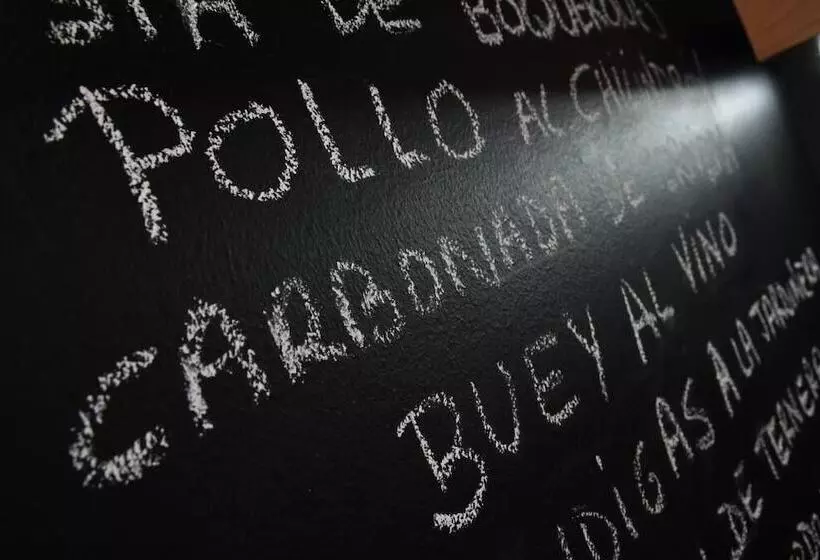 DE BOQUERONES
POLLO AL CHILINDRÓN
CARBONADA DE
BUEY AL VINO
DIGAS A LA JARDINERA
DE TERNERA